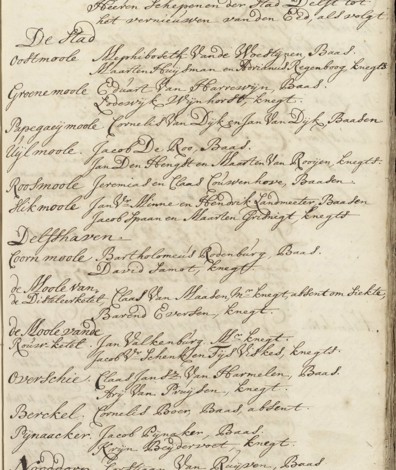 Heeren Schepenen der Stad Delft tot
het vernieuwen van den Eed, als volgt
De Stad
Oostmoole Mephiboseth Vande Baas.
Maarten Huijsman en Regenboog, knegts
Groene moole Eduart Van Harrewijn, Baas.
Lodewijk Wijnhorst, knegt.
Papegaeij moole Cornelis Van Dijk en Jan Van Dijk, Baasen
Uijl moole. Jacob De Roo, Baas.
Jan Den Hengst en Maarten Van Rooijen, knegts.
Roosmoole Jeremias en Claas Couwenhove, Baasen.
Slikmoole Jan Vr. Minne en Hendrik Landmeeter, Baasen
Jacob Spaan en Maarten knegts
Delfshaven.
Coorn moole. Bartholomeus Rodenburg, Baas.
David Jamot, knegt
de Moole van
de Claas Van Maasen, Mr. knegt, absent om Siekte,
Barend Eversen, knegt.
de Moole vande
Jan Valkenburg. Mr. knegt.
Jacob Vr. Schenk en Tijs Veskes, knegts.
Overschie. Claas Jansz. Van Harmelen, Baas.
Arij Van Pruijsen, knegt.
Berckel. Cornelis Boer, Baas, absent.
Pijnaacker. Jacob Pijnaker, Baas.
Krijn Beijdervoet, knegt.
Van Ruijven, Baas.